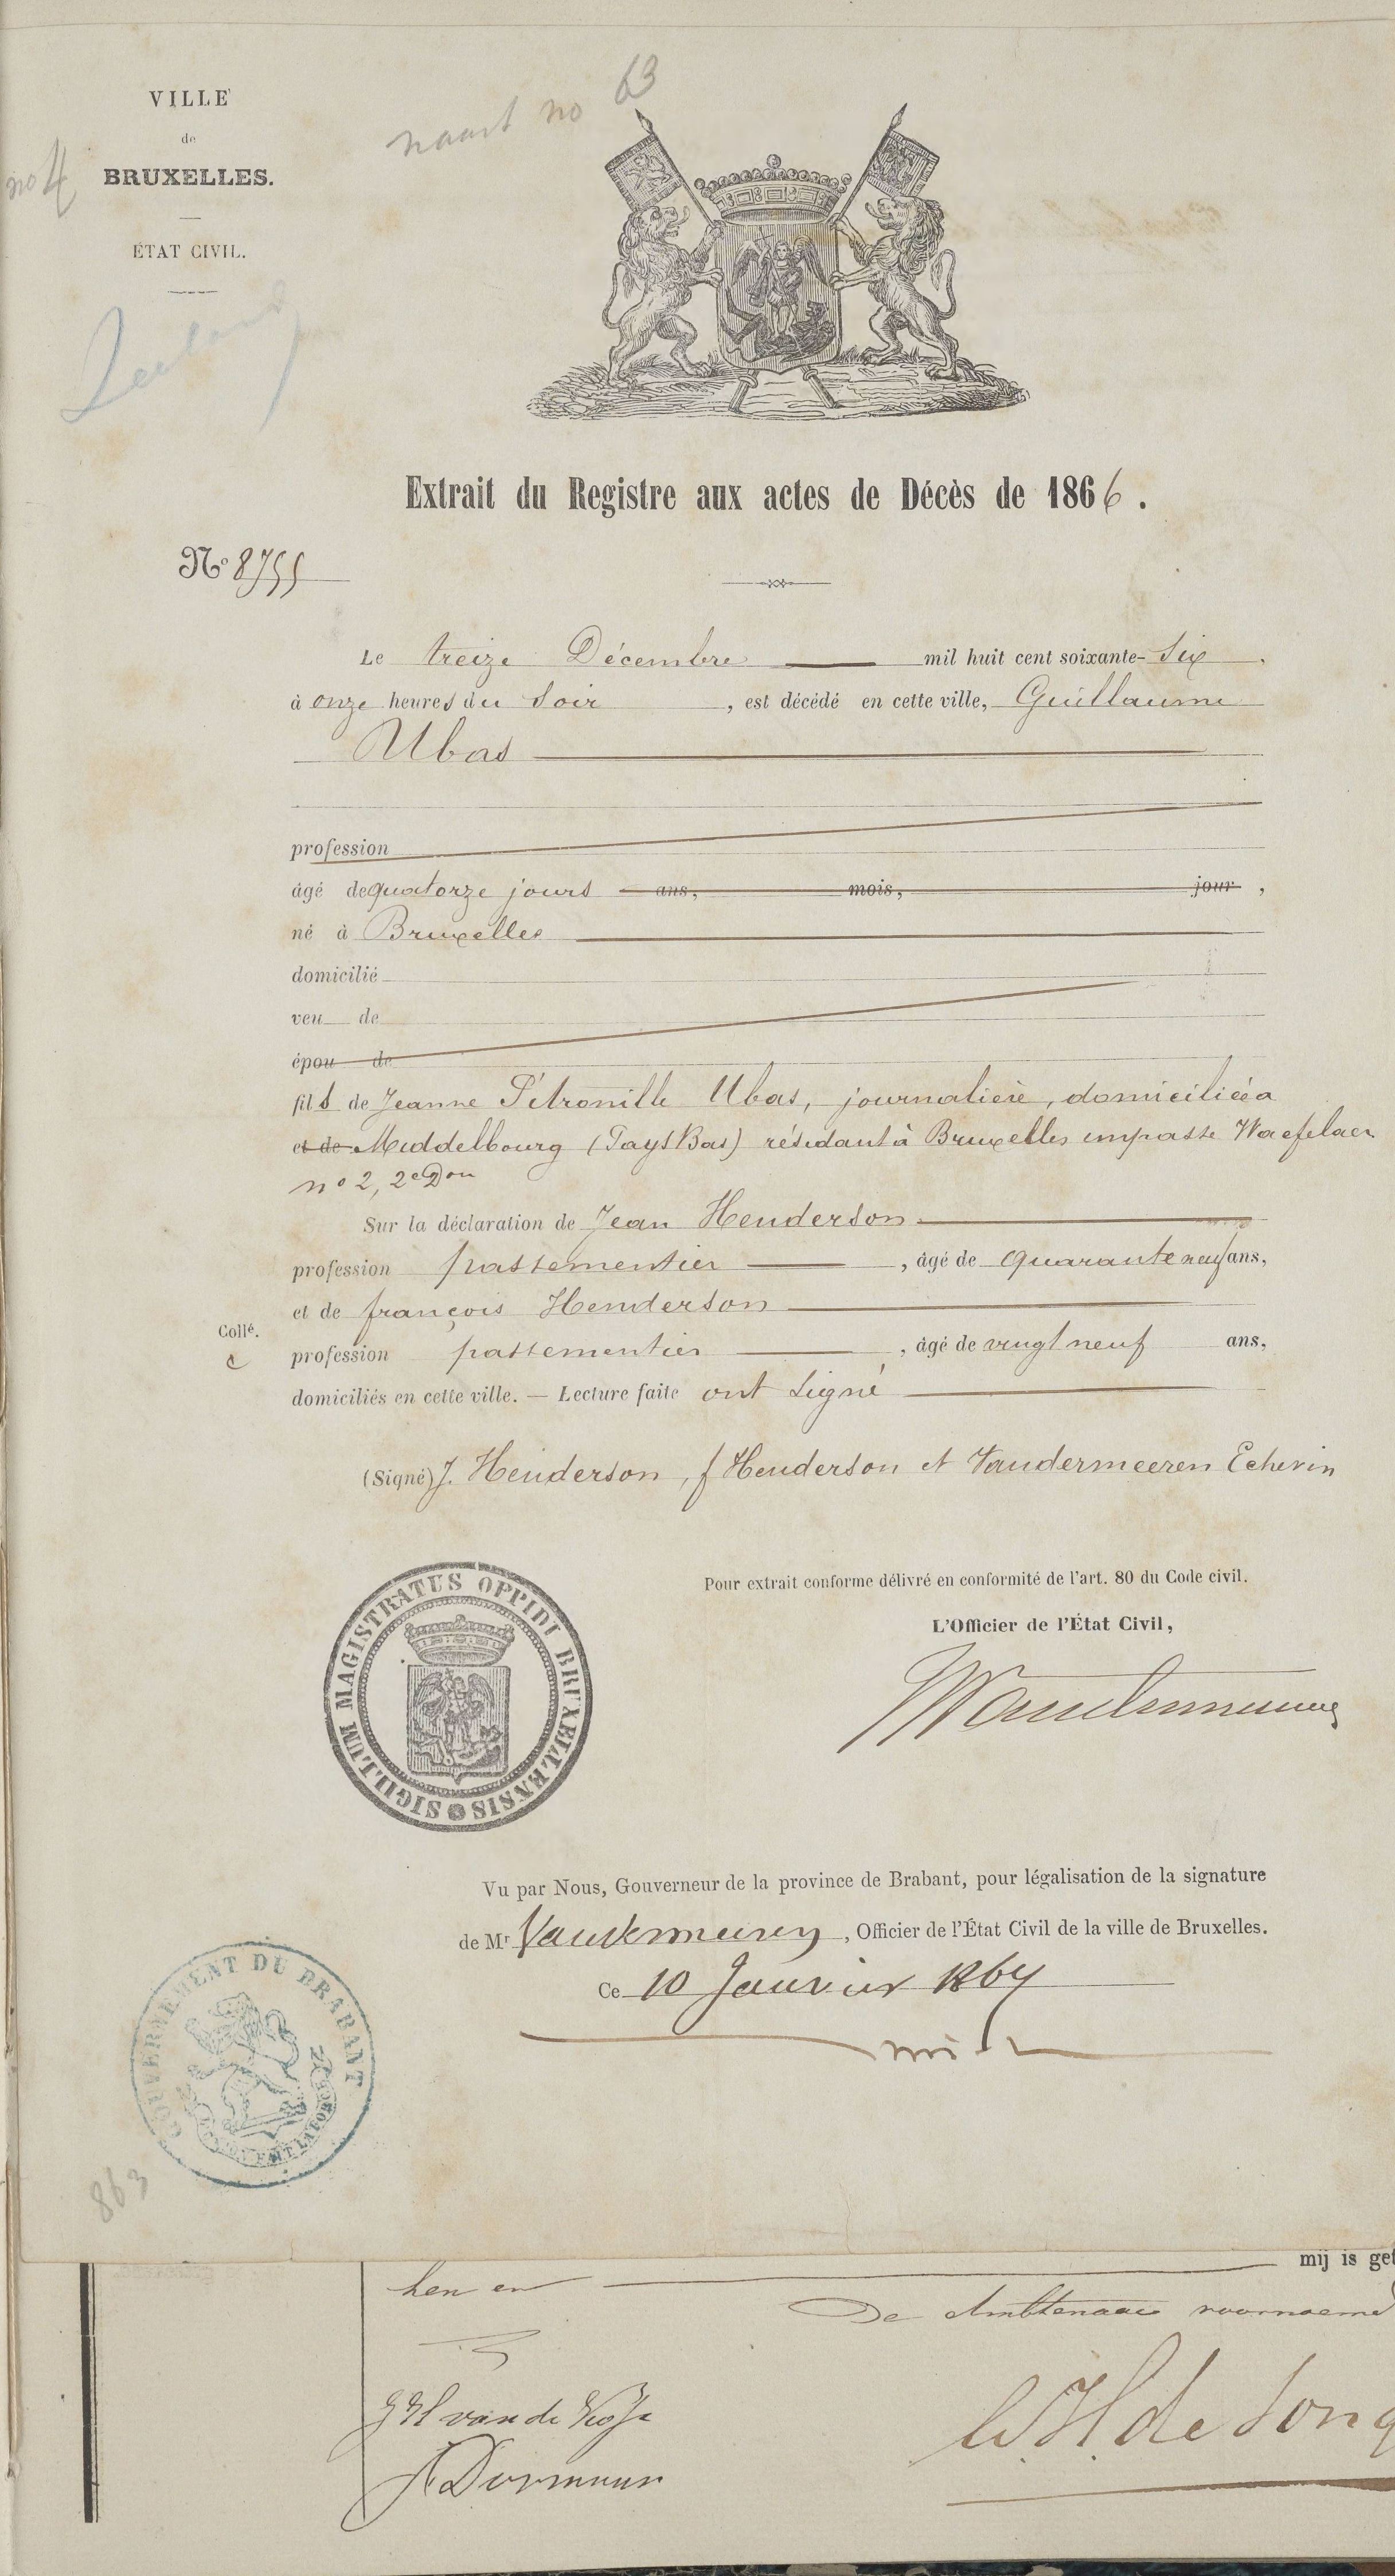 VILLE
de
BRUXELLES.
ÉTAT CIVIL.
naart no 63
no 4
Zeeland
Extrait du Registre aux actes de Décès de 1866.
No 8755
Le treize Décembre mil huit cent soixante-Six.
à onze heures du Soir, est décédé en cette ville, Guillaume
Ubas
profession
âgé de quatorze jours ans, mois, jour,
né à Bruxelles
domicilié
veu de
épou de
fils de Jeanne Pétronille Ubas, journalière, domiciliée à
et de Middelbourg (Pays Bas) résidant à Bruxelles impasse Waefelaer
no 2, 2e Don
Sur la déclaration de Jean Henderson
profession passementier, âgé de quarante neuf ans,
et de françois Henderson
Collé.
profession passementier, âgé de vingt neuf ans,
domiciliés en cette ville. — Lecture faite ont Signé
(Signé) J. Henderson, f Henderson et Vandermeeren Echevin
Pour extrait conforme délivré en conformité de l'art. 80 du Code civil.
L'Officier de l'État Civil,
SIGILLUM MAGISTRATUS OPPIDI BRUXELLENSIS
Vu par Nous, Gouverneur de la province de Brabant, pour légalisation de la signature
de Mr Vandermeeren, Officier de l'État Civil de la ville de Bruxelles.
Ce 10 Janvier 1867
GOUVERNEMENT DU BRABANT
863
mij is get
hen en
De Ambtenaar voornoemd
W H de Jong